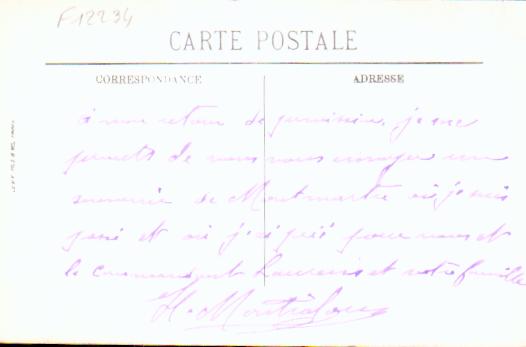 F12234
CARTE POSTALE
CORRESPONDANCE
ADRESSE
à mon retour de permission, je me
permets de vous envoyer un
souvenir de Montmartre où je suis
passé et où j'ai prié pour vous et
le commandant Laurens et votre famille
H.